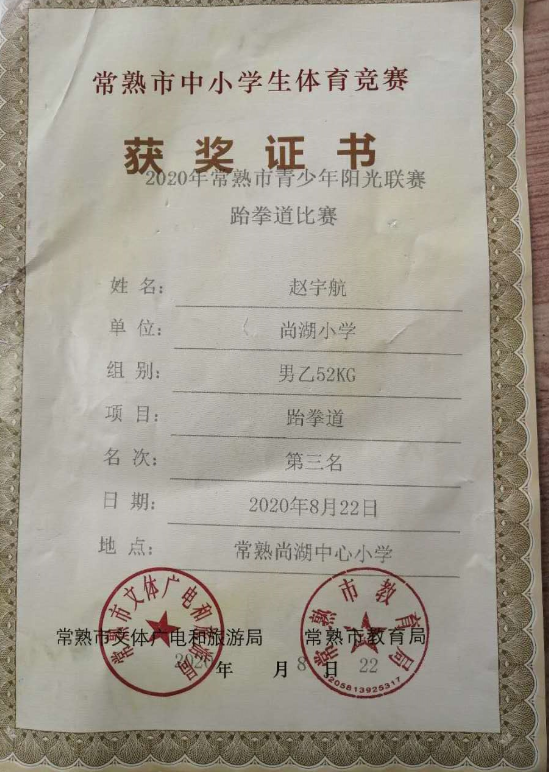 常熟市中小学生体育竞赛
获奖证书
2020年常熟市青少年阳光联赛
跆拳道比赛
姓名：赵宇航
单位：尚湖小学
组别：男乙52KG
项目：跆拳道
名次：第三名
日期：2020年8月22日
地点：常熟尚湖中心小学
常熟市文体广电和旅游局
常熟市教育局
常熟市文体广电和旅游局 常熟市教育局
3205813925317
2020年 月8日 22